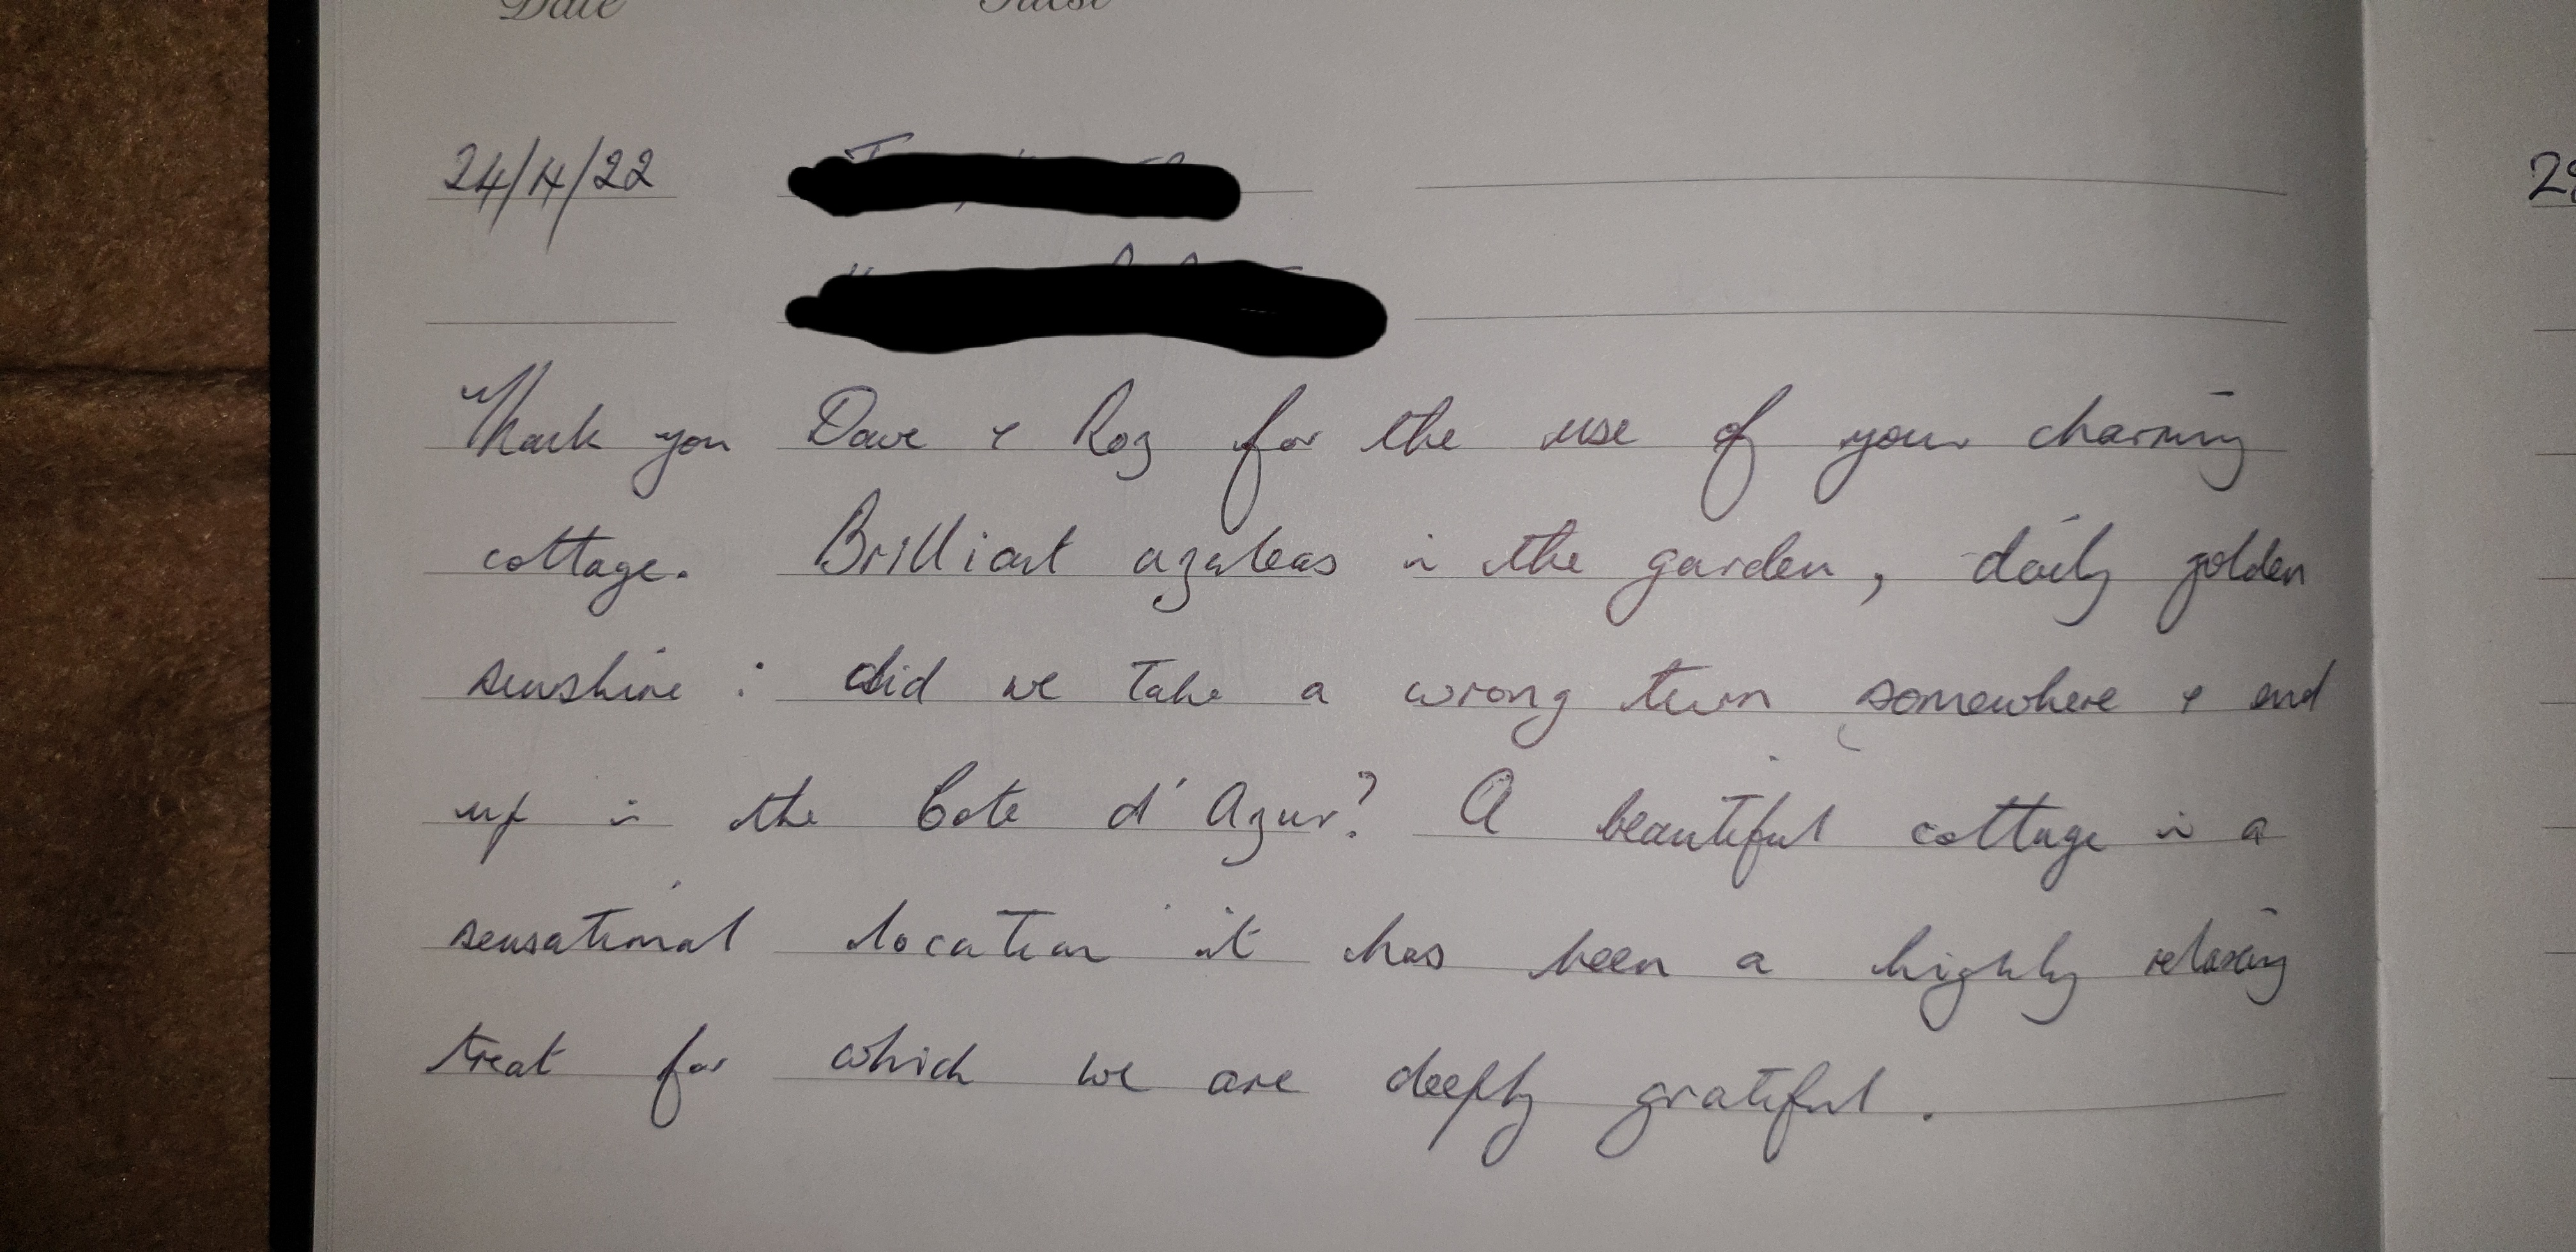 Date Guest
24/4/22
Thank you Dave & Roz for the use of your charming
cottage. Brilliant azaleas in the garden, daily golden
sunshine : did we take a wrong turn somewhere & end
up in the Cote d'Azur? A beautiful cottage in a
sensational location it has been a highly relaxing
treat for which we are deeply grateful.